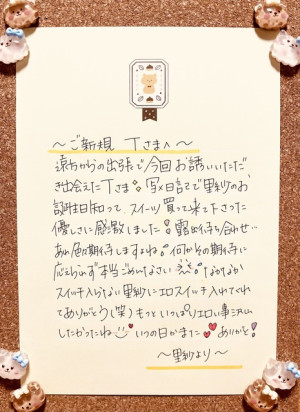 ～ご新規 Tさまへ～
遠方からの出張で今回お誘いいただ
き出会えたTさま 写メ日記で里紗のお
誕生日知って スイーツ買って来て下さった
優しさに感激しました 露出待ち合わせ…
あの色期待しますよね。何かその期待に
応えられず本当ごめんなさい なかなか
スイッチ入らない里紗にエロスイッチ入れてくれ
てありがとう(笑)もっといっぱいエロい事
したかったね いつの日かまた ありがと!
～里紗より～